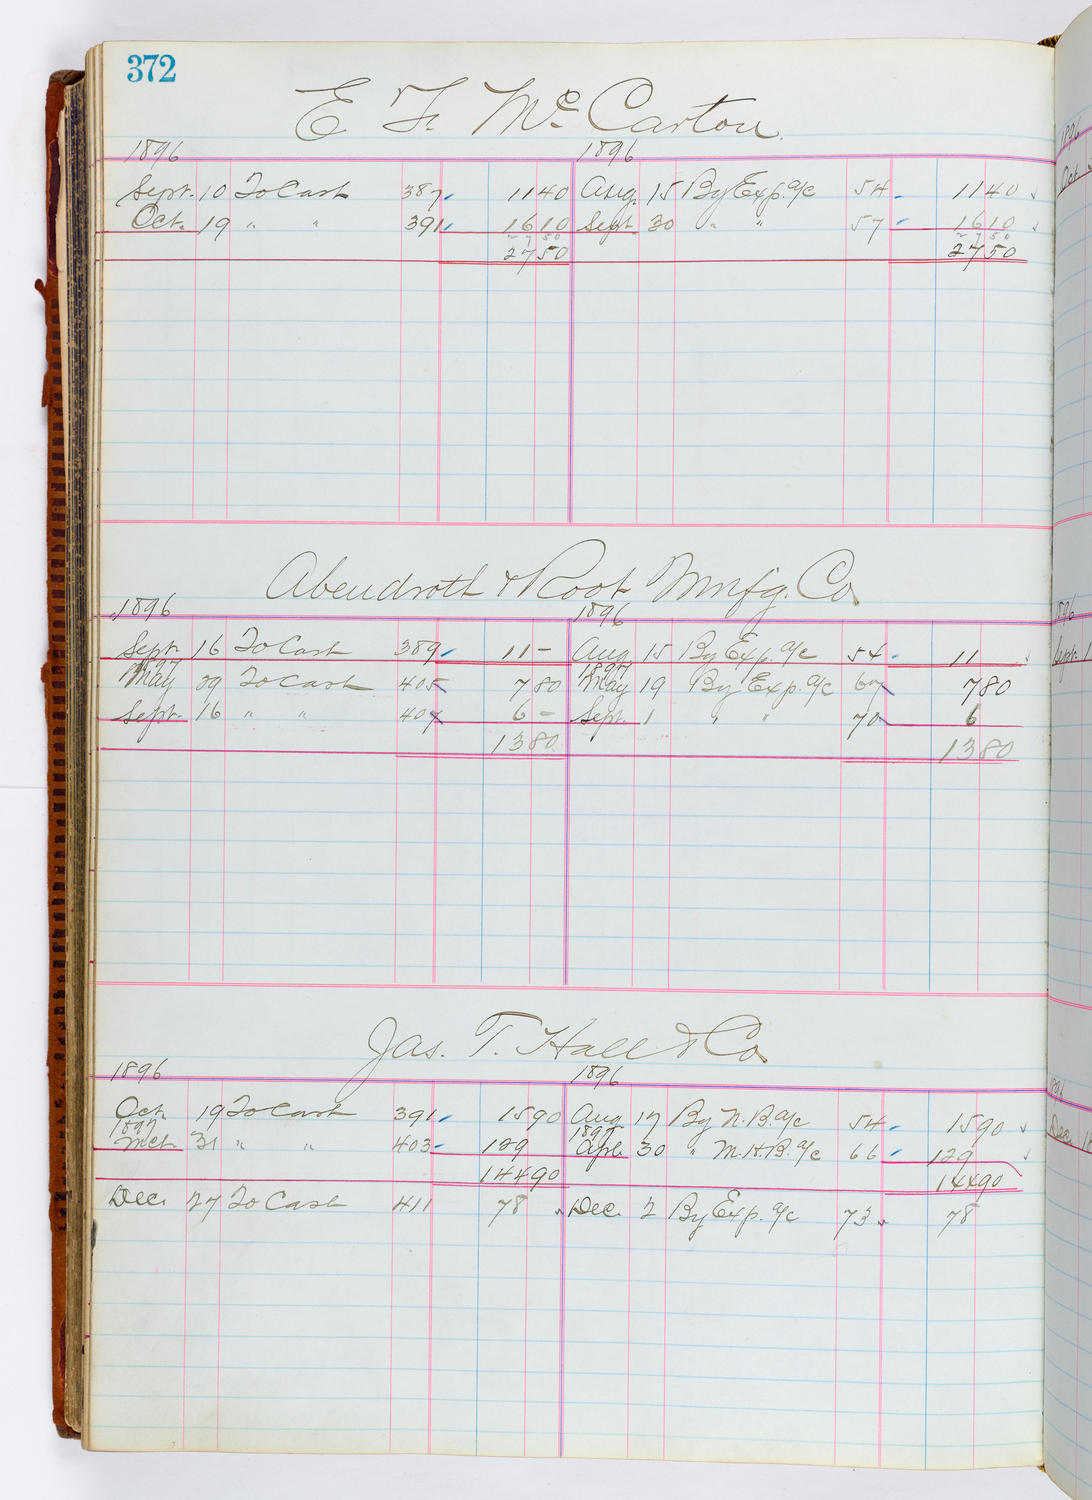 372
E. F. McCarton
1896 1896
Sept. 10 To Cash 387 11 40 Aug. 15 By Exp. a/c 54 11 40
Oct. 19 " " 391 16 10 Sept. 30 " " 57 16 10
27 50 27 50
27 50 27 50
Abendroth & Root Mnfg. Co
1896 1896
Sept. 16 To Cash 389 11 - Aug 15 By Exp. a/c 54 11
1897 1897
May 29 To Cash 405 7 80 May 19 By Exp. a/c 67 7 80
Sept. 16 " " 407 6 - Sept. 1 " " 70 6
13 80 13 80
Jas. T. Hall & Co
1896 1896
Oct. 19 To Cash 391 15 90 Aug 17 By N. B. a/c 54 15 90
1897 1897
Mch. 31 " " 403 129 Apl. 30 " M. H. B. a/c 66 129
144 90 144 90
Dec. 27 To Cash 411 78 Dec. 2 By Exp. a/c 73 78
1896
Oct
1896
Sept. 1
Dec.